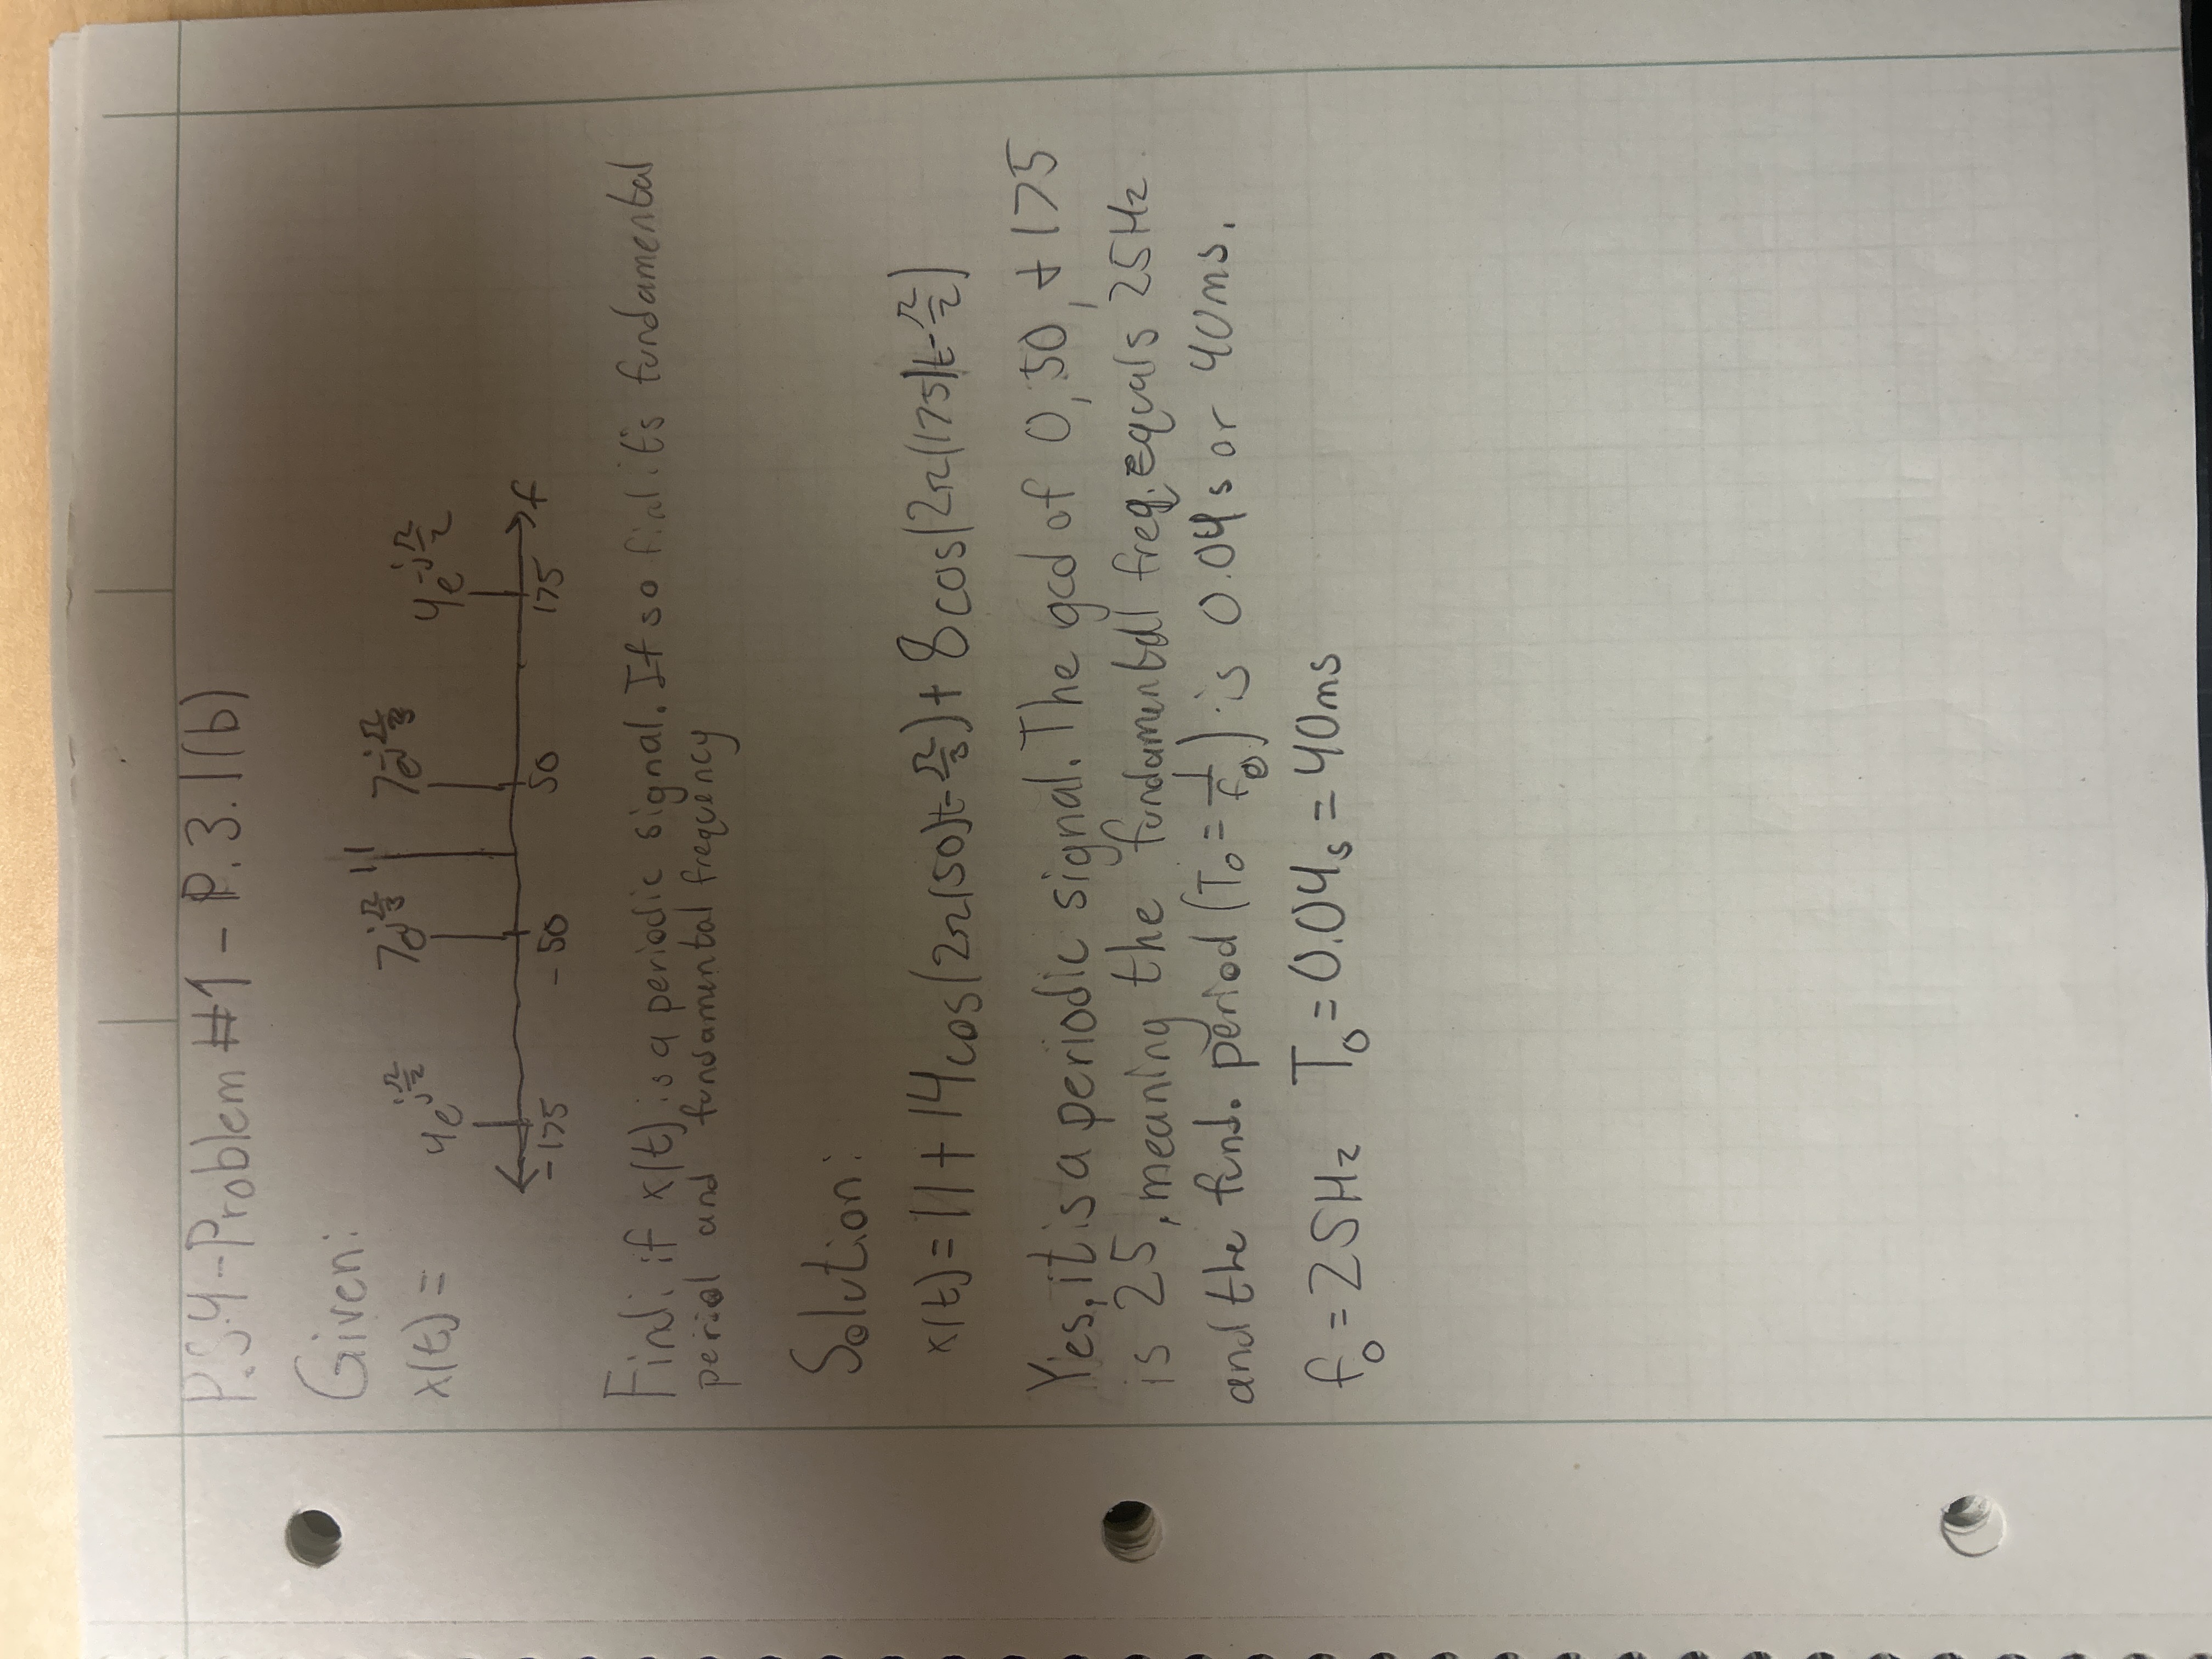 P.S.4-Problem #1 - P.3.1(b)
Given:
x(t) =
4e^{jπ/2} 7e^{jπ/3} 11 7e^{-jπ/3} 4e^{-jπ/2}
-175 -50 50 175 f
Find: if x(t) is a periodic signal. If so find it's fundamental
period and fundamental frequency
Solution:
x(t) = 11 + 14cos(2π(50)t-π/3) + 8cos(2π(175)t-π/2)
Yes, it is a periodic signal. The gcd of 0, 50, + 175
is 25, meaning the fundamental freq. equals 25Hz
and the fund. period (T₀ = 1/f₀) is 0.04s or 40ms.
f₀ = 25Hz T₀ = 0.04s = 40ms